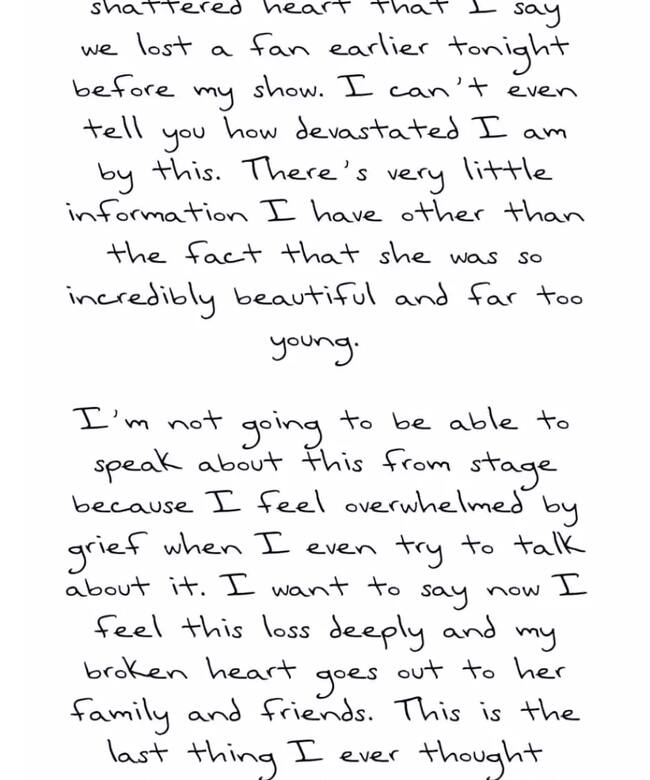 shattered heart that I say
we lost a fan earlier tonight
before my show. I can't even
tell you how devastated I am
by this. There's very little
information I have other than
the fact that she was so
incredibly beautiful and far too
young.
I'm not going to be able to
speak about this from stage
because I feel overwhelmed by
grief when I even try to talk
about it. I want to say now I
feel this loss deeply and my
broken heart goes out to her
family and friends. This is the
last thing I ever thought